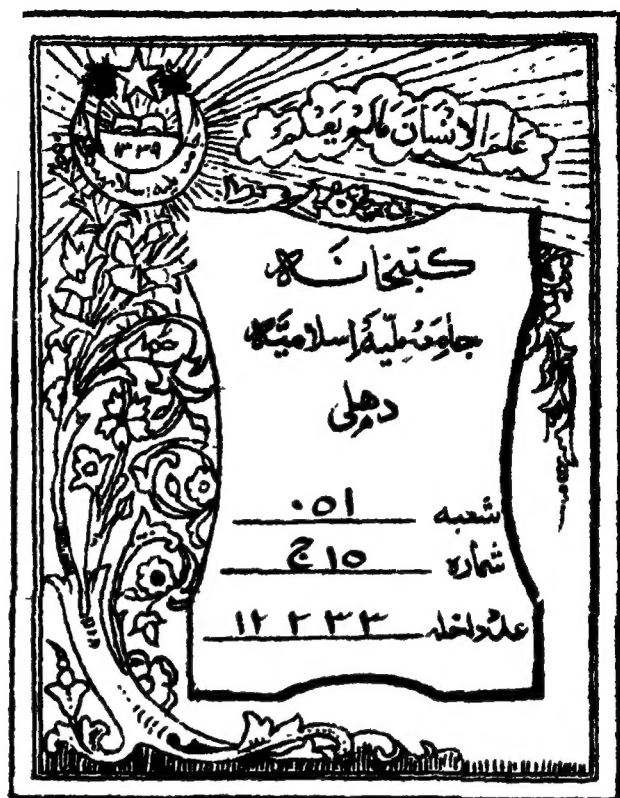 علم الانسان مالم يعلم
١٣٣٩
کتبخانہ
جامعہ ملیہ اسلامیہ
دہلی
شعبہ ٠٥١
شمارہ ١٥ ج
عدد داخلہ ١٢٢٣٣